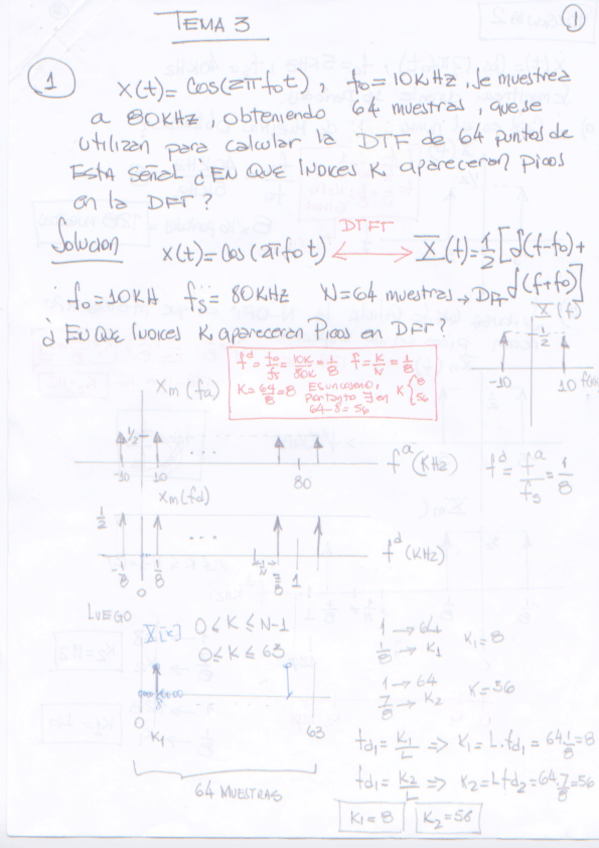 TEMA 3
1
1
X(t)= Cos(2πfot), fo=10KHz, Se muestrea
a 80KHz, obteniendo 64 muestras, que se
utilizan para calcular la DTF de 64 puntos de
ESTA SEÑAL ¿EN QUE INDICES K apareceran Picos
en la DFT?
Solucion X(t)=Cos(2πfot) DTFT X(f)=1/2[δ(f-fo)+
δ(f+fo)]
fo=10KH fs=80KHz N=64 muestras → DFT
X(f)
¿ EN QUE INDICES K aparecerán Picos en DFT?
1/2
-10 10 f(KHz)
f^d=fo/fs=10K/80K=1/8 f=K/N=1/8
K=64/8=8 Es un coseno, K 8
por tanto ∃ en 56
64-8=56
Xm(fa)
1/2 ...
-10 10 80 f^a(KHz)
f^d=f^a/fs=1/8
Xm(fd)
1/2 ...
-1/8 0 1/8 7/8 1 f^d(KHz)
LUEGO
X[K] 0≤K≤N-1
0≤K≤63
1→64
1/8→K1 K1=8
1→64
7/8→K2 K=56
0 K1 63
64 MUESTRAS
fd1=K1/L ⇒ K1=L.fd1=64.1/8=8
fd1=K2/L ⇒ K2=Lfd2=64.7/8=56
K1=8 K2=56